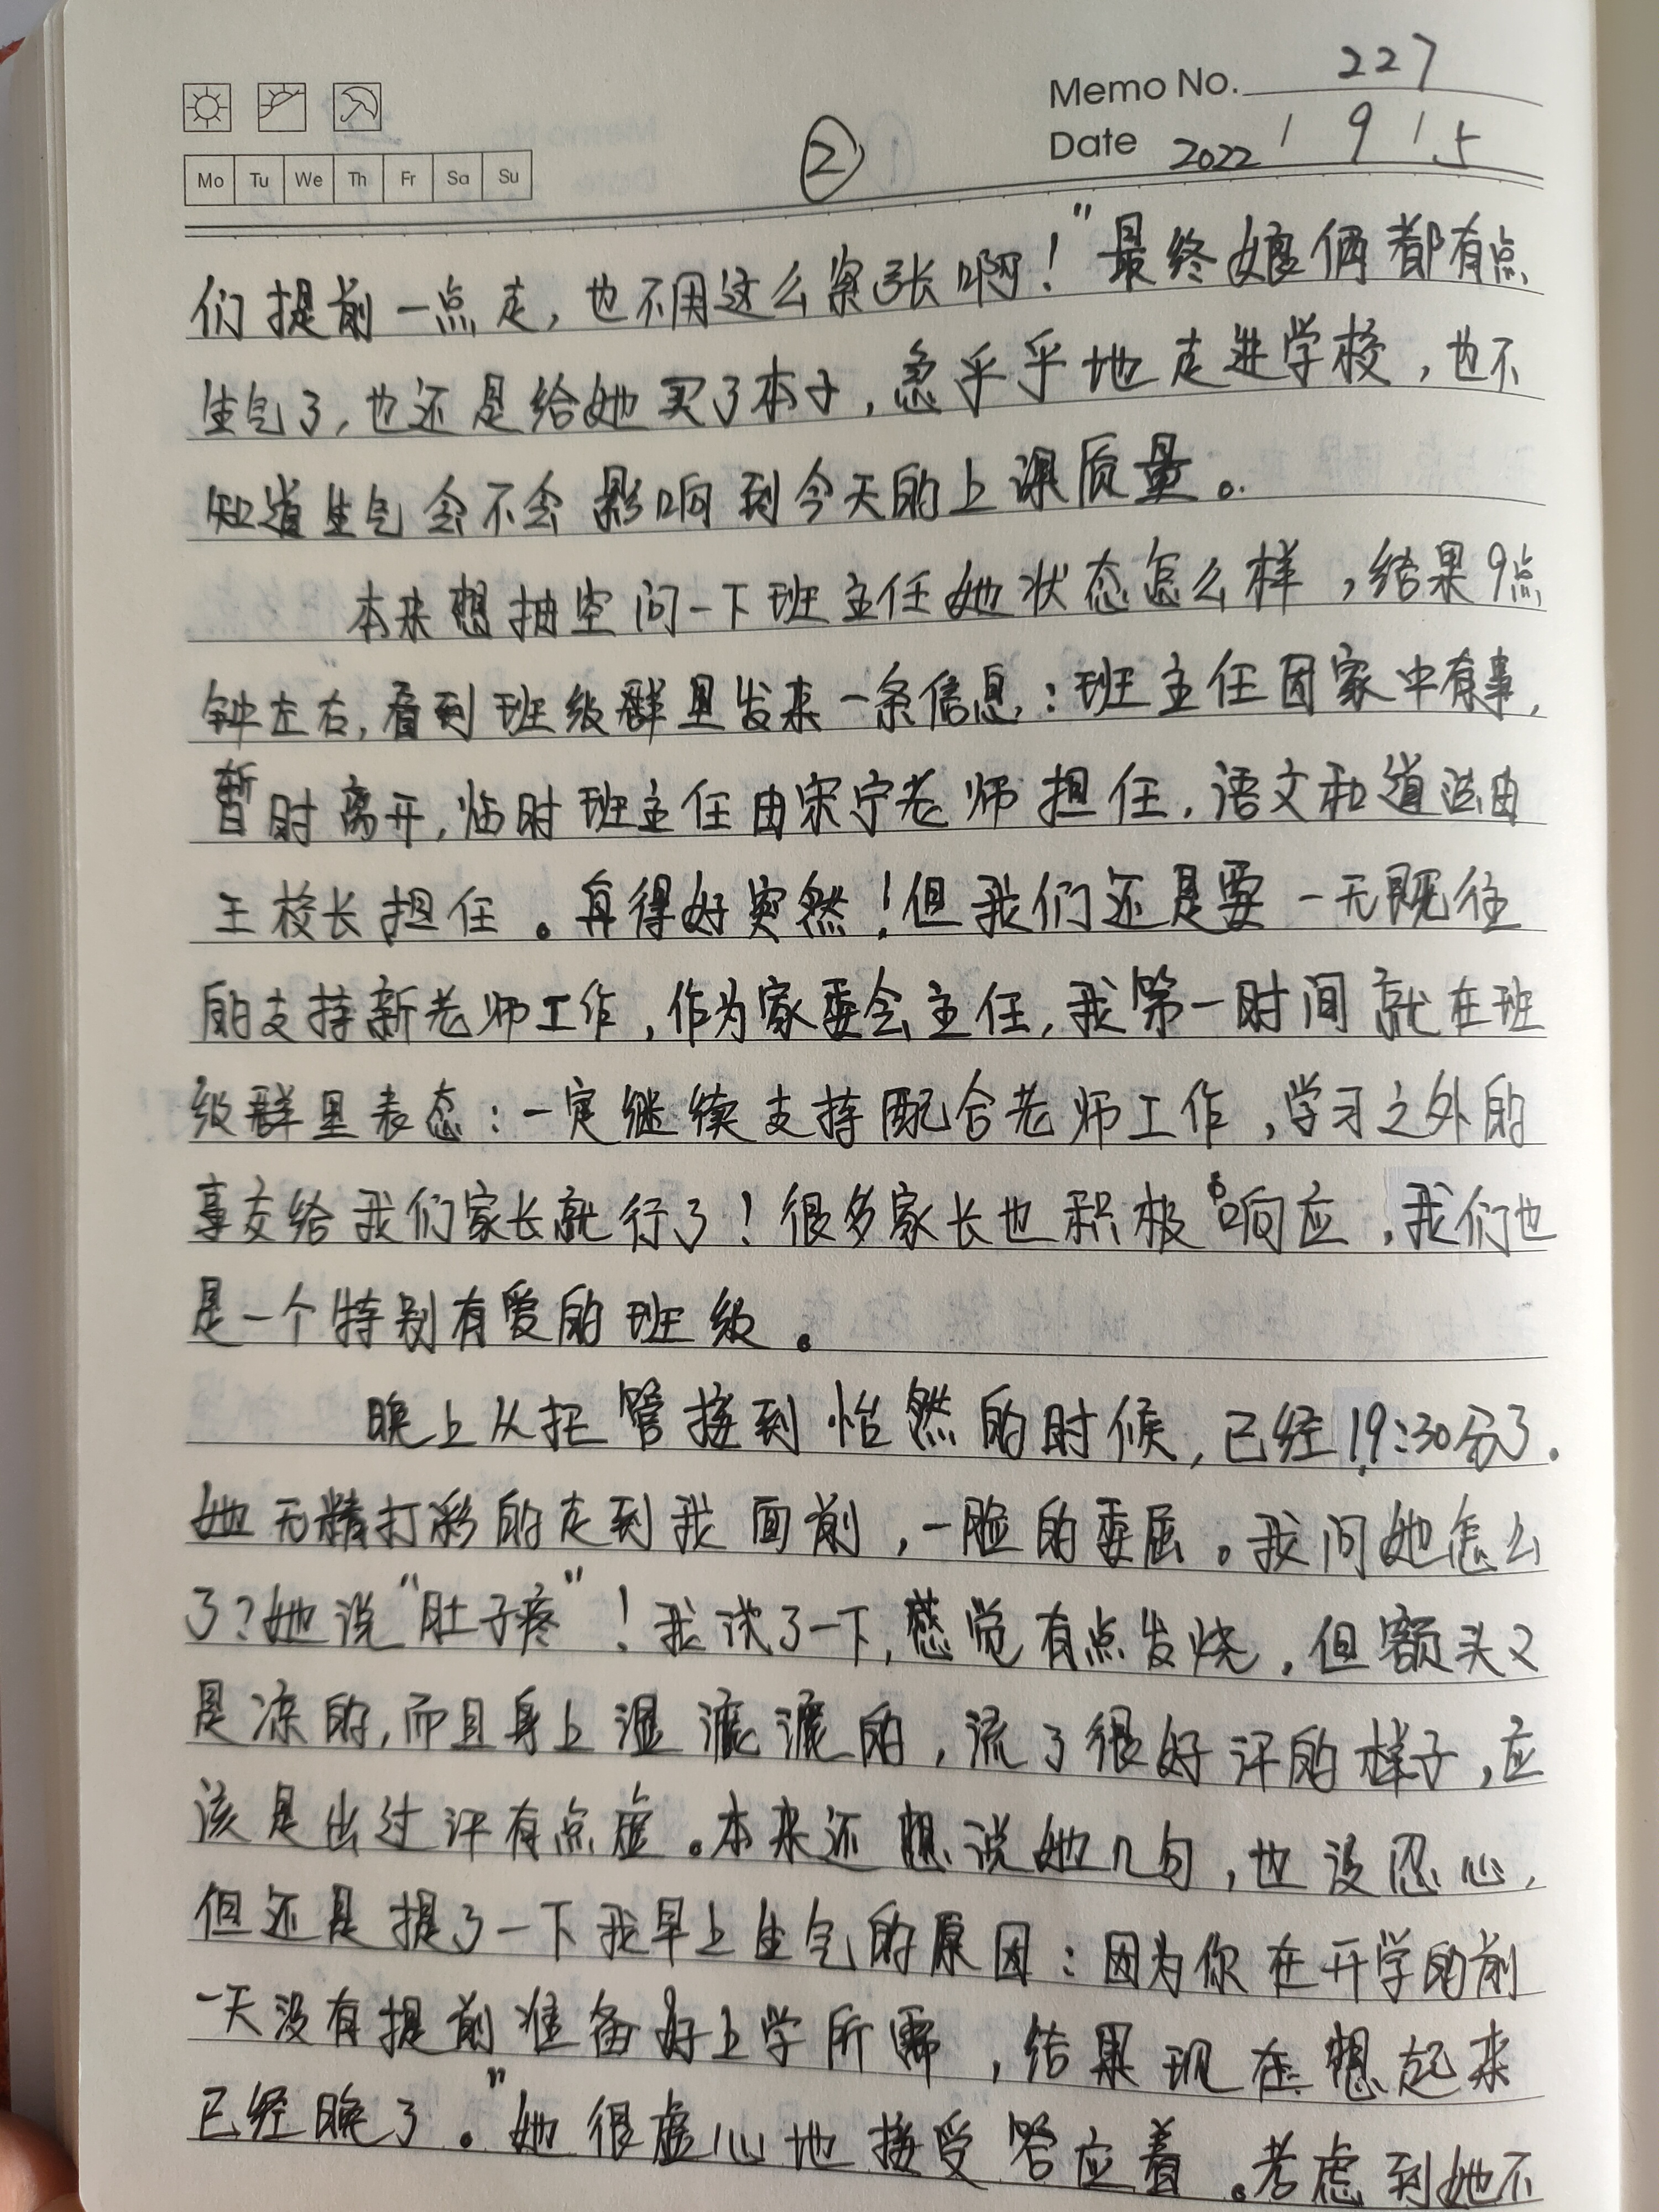 Memo No. 227
Mo Tu We Th Fr Sa Su
②
Date 2022 / 9 / 5
们提前一点走，也不用这么紧张啊！”最终娘俩都有点
生气了，也还是给她买了本子，急乎乎地走进学校，也不
知道生气会不会影响到今天的上课质量。
本来想抽空问一下班主任她状态怎么样，结果9点
钟左右，看到班级群里发来一条信息：班主任因家中有事，
暂时离开，临时班主任由宋宁老师担任，语文和道法由
王校长担任。真得好突然！但我们还是要一无既往
的支持新老师工作，作为家委会主任，我第一时间就在班
级群里表态：一定继续支持配合老师工作，学习之外的
事交给我们家长就行了！很多家长也积极响应，我们也
是一个特别有爱的班级。
晚上从托管接到怡然的时候，已经19:30分了．
她无精打彩的走到我面前，一脸的委屈。我问她怎么
了？她说“肚子疼”！我试了一下，感觉有点发烧，但额头又
是凉的，而且身上湿漉漉的，流了很好汗的样子，应
该是出过汗有点虚。本来还想说她几句，也没忍心，
但还是提了一下我早上生气的原因：因为你在开学的前
一天没有提前准备好上学所需，结果现在想起来
已经晚了。”她很虚心地接受答应着。考虑到她不